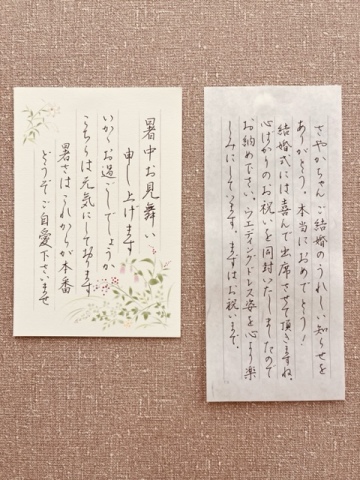 さやかちゃんご結婚のうれしい知らせを
ありがとう。本当におめでとう！
結婚式には喜んで出席させて頂きますね。
心ばかりのお祝いを同封いたしましたので
お納め下さい。ウエディングドレス姿を心より楽
しみにしています。まずはお祝いまで。
暑中お見舞い
申し上げます
いかゞお過ごしでしょうか
こちらは元気にしております
暑さはこれからが本番
どうぞご自愛下さいませ